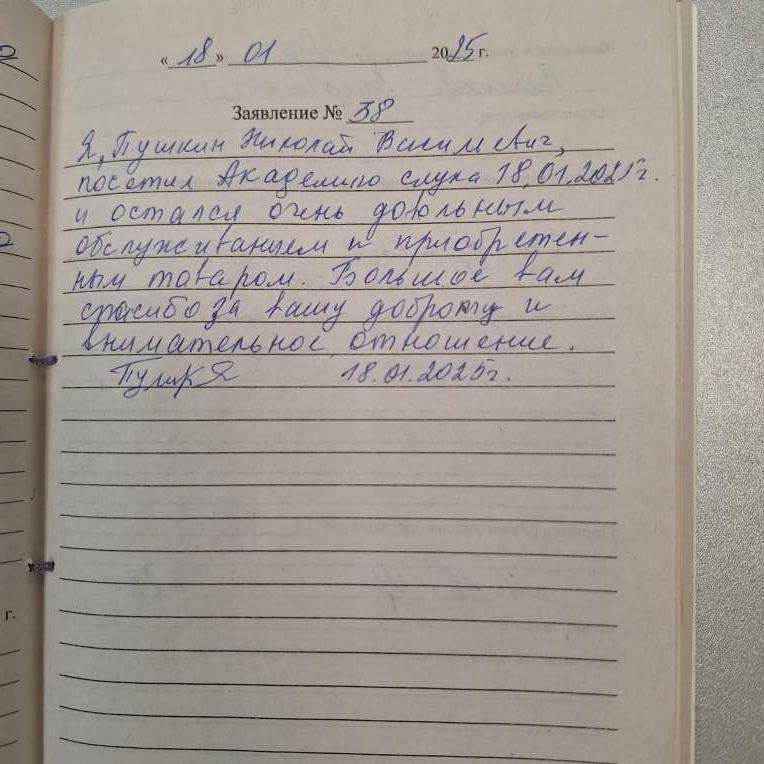 «18» 01 2025 г.
Заявление № 38
Я, Пушкин Николай Васильевич,
посетил Академию слуха 18.01.2025г.
и остался очень довольным
обслуживанием и приобретен-
ным товаром. Большое вам
спасибо за вашу доброту и
внимательное отношение.
18.01.2025г.
г.